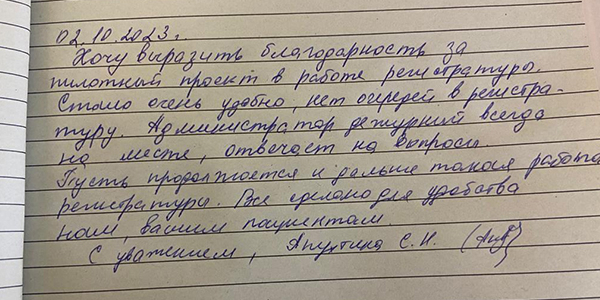 02.10.2023г.
Хочу выразить благодарность за
пилотный проект в работе регистратуры.
Стало очень удобно, нет очередей в регистра-
туру. Администратор дежурный всегда
на месте, отвечает на вопросы.
Пусть продолжается и дальше такая работа
регистратуры. Все сделано для удобства
нам, вашим пациентам.
С уважением, Апухтина С.Н.